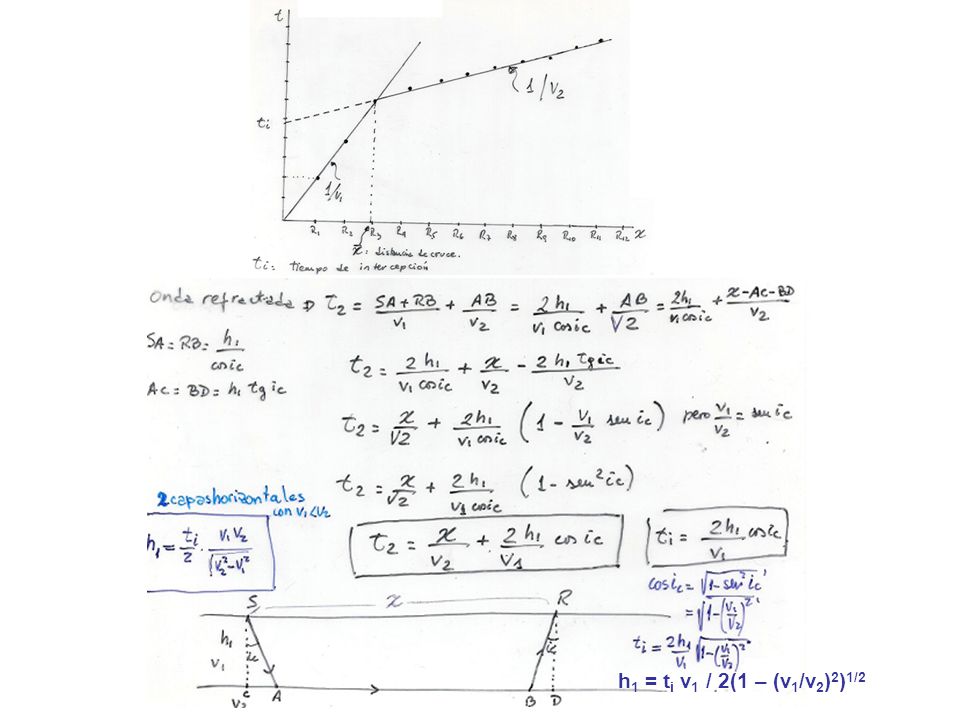 t
1/V₂
ti
1/V₁
R₁ R₂ R₃ R₄ R₅ R₆ R₇ R₈ R₉ R₁₀ R₁₁ R₁₂ x
x̄: distancia de cruce.
ti = tiempo de intercepción
Onda refractada ⇒ t₂ = (SA+RB)/v₁ + AB/v₂ = 2h₁/(v₁ cosic) + AB/V2 = 2h₁/(v₁cosic) + (x-AC-BD)/v₂
SA = RB = h₁/cosic
t₂ = 2h₁/(v₁ cosic) + x/v₂ - 2h₁ tgic/v₂
AC = BD = h₁ tgic
t₂ = x/V2 + 2h₁/(v₁cosic) (1 - v₁/v₂ senic) pero v₁/v₂ = senic
t₂ = x/V2 + 2h₁/(v₁ cosic) (1 - sen²ic)
2 capas horizontales
con v₁<v₂
h₁ = ti/2 · v₁v₂/√(v₂²-v₁²)
t₂ = x/v₂ + 2h₁/V₁ cosic
ti = 2h₁/v₁ cosic
cosic = √(1-sen²ic)
= √(1-(v₁/v₂)²)
ti = 2h₁/v₁ √(1-(v₁/v₂)²)
S x R
h₁ ic ic
v₁
C A B D
v₂
h₁ = tᵢ v₁ / 2(1 – (v₁/v₂)²)¹/²